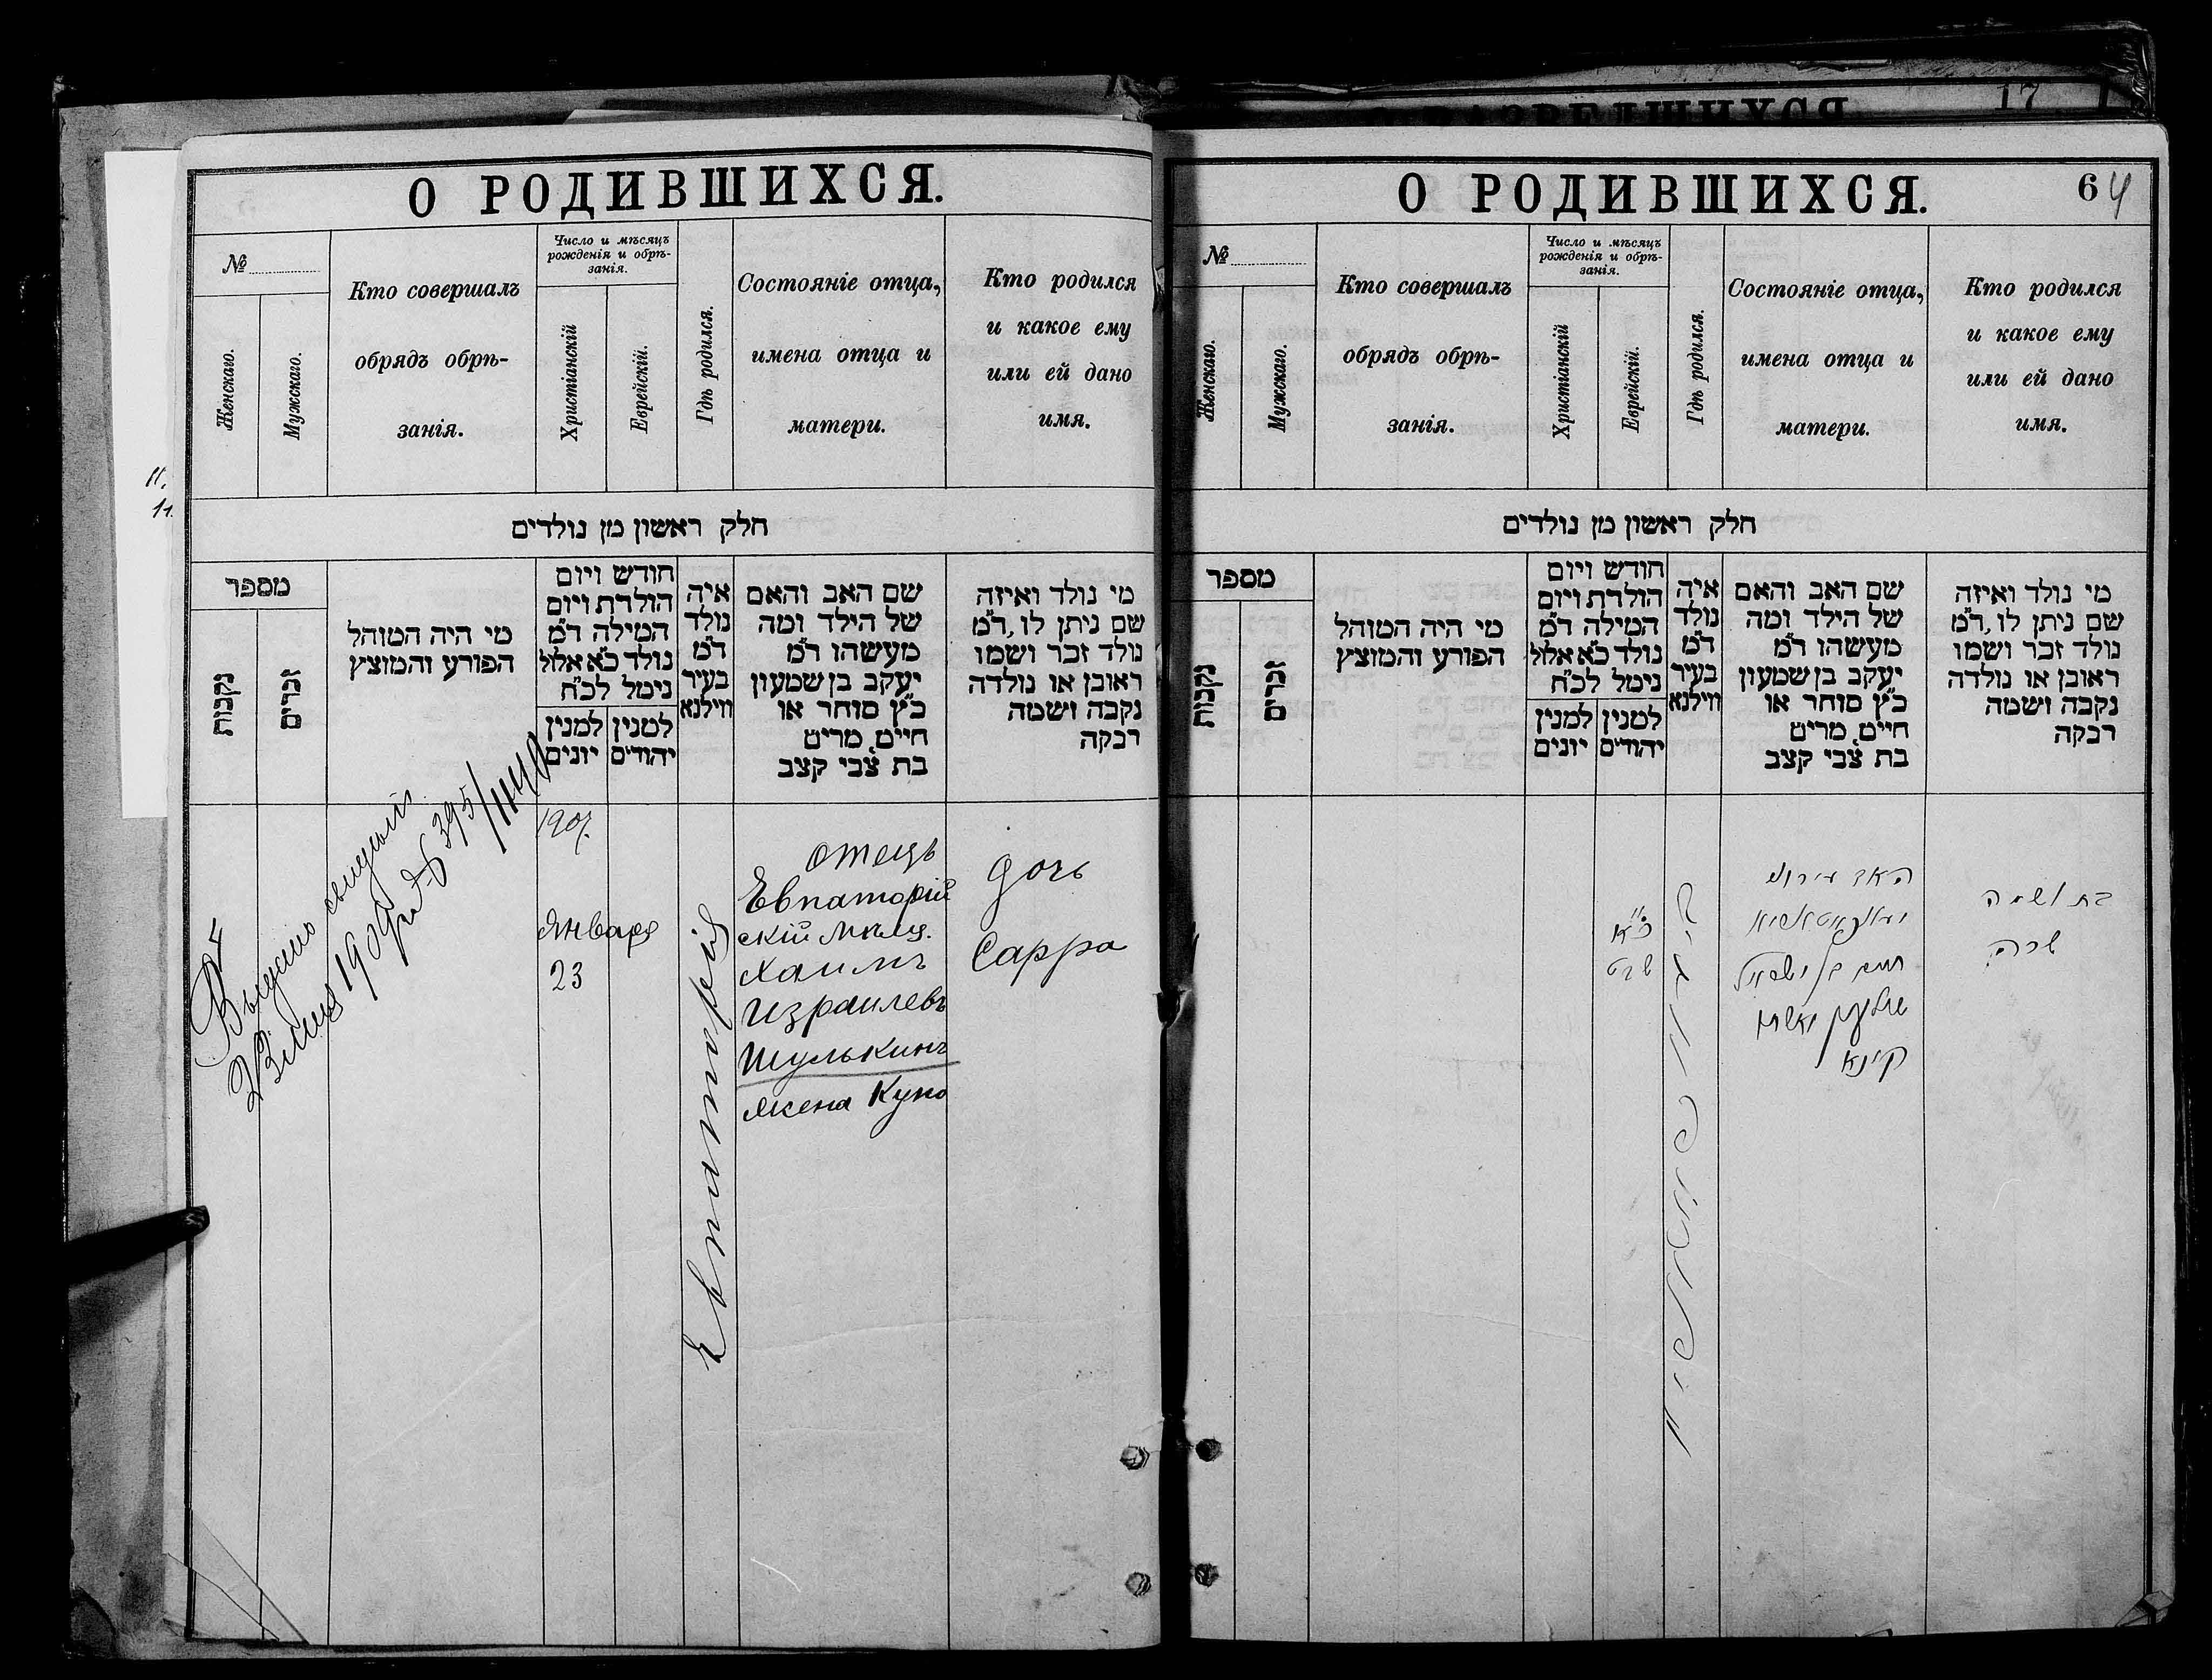 17
О РАЗВЕДШИХСЯ
О РОДИВШИХСЯ.
№
Женскаго.
Мужскаго.
Кто совершалъ
обрядъ обрѣ-
занія.
Число и мѣсяцъ
рожденія и обрѣ-
занія.
Христіанскій
Еврейскій.
Гдѣ родился.
Состояніе отца,
имена отца и
матери.
Кто родился
и какое ему
или ей дано
имя.
חלק ראשון מן נולדים
מספר
נקבות
זכרים
מי היה המוהל
הפורע והמוצץ
חודש ויום
הולדת ויום
המילה ד״מ
נולד כ״א אלול
נימל לכ״ח
למנין
יונים
למנין
יהודים
איה
נולד
ד״מ
בעיר
ווילנא
שם האב והאם
של הילד ומה
מעשהו ד״מ
יעקב בן שמעון
כ״ץ סוחר או
חיים, מרים
בת צבי קצב
מי נולד ואיזה
שם ניתן לו, ד״מ
נולד זכר ושמו
ראובן או נולדה
נקבה ושמה
רבקה
Выдано
1909
395/
1907.
Января
23
Евпаторія
отецъ
Евпаторій
скій мѣщ.
Хаимъ
Израилевъ
Шулькинъ
жена Куна
дочь
Сарра
О РОДИВШИХСЯ.
64
№
Женскаго.
Мужскаго.
Кто совершалъ
обрядъ обрѣ-
занія.
Число и мѣсяцъ
рожденія и обрѣ-
занія.
Христіанскій
Еврейскій.
Гдѣ родился.
Состояніе отца,
имена отца и
матери.
Кто родился
и какое ему
или ей дано
имя.
חלק ראשון מן נולדים
מספר
נקבות
זכרים
מי היה המוהל
הפורע והמוצץ
חודש ויום
הולדת ויום
המילה ד״מ
נולד כ״א אלול
נימל לכ״ח
למנין
יונים
למנין
יהודים
איה
נולד
ד״מ
בעיר
ווילנא
שם האב והאם
של הילד ומה
מעשהו ד״מ
יעקב בן שמעון
כ״ץ סוחר או
חיים, מרים
בת צבי קצב
מי נולד ואיזה
שם ניתן לו, ד״מ
נולד זכר ושמו
ראובן או נולדה
נקבה ושמה
רבקה
שבט
חיים בן ישראל
שולקין ואשתו
קינא
בת ושמה
שרה